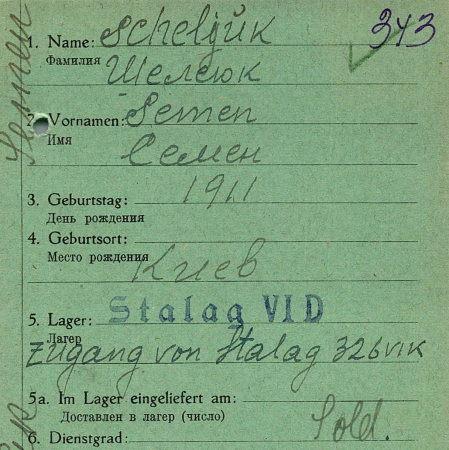 343
1. Name: Scheljuk
Фамилия Шелеюк
2. Vornamen: Semen
Имя Семен
3. Geburtstag: 1911
День рождения
4. Geburtsort:
Место рождения Киев
5. Lager: Stalag VI D
Лагерь
Zugang von Stalag 326 VI K
5a. Im Lager eingeliefert am:
Доставлен в лагерь (число)
6. Dienstgrad: Sold.
Semen